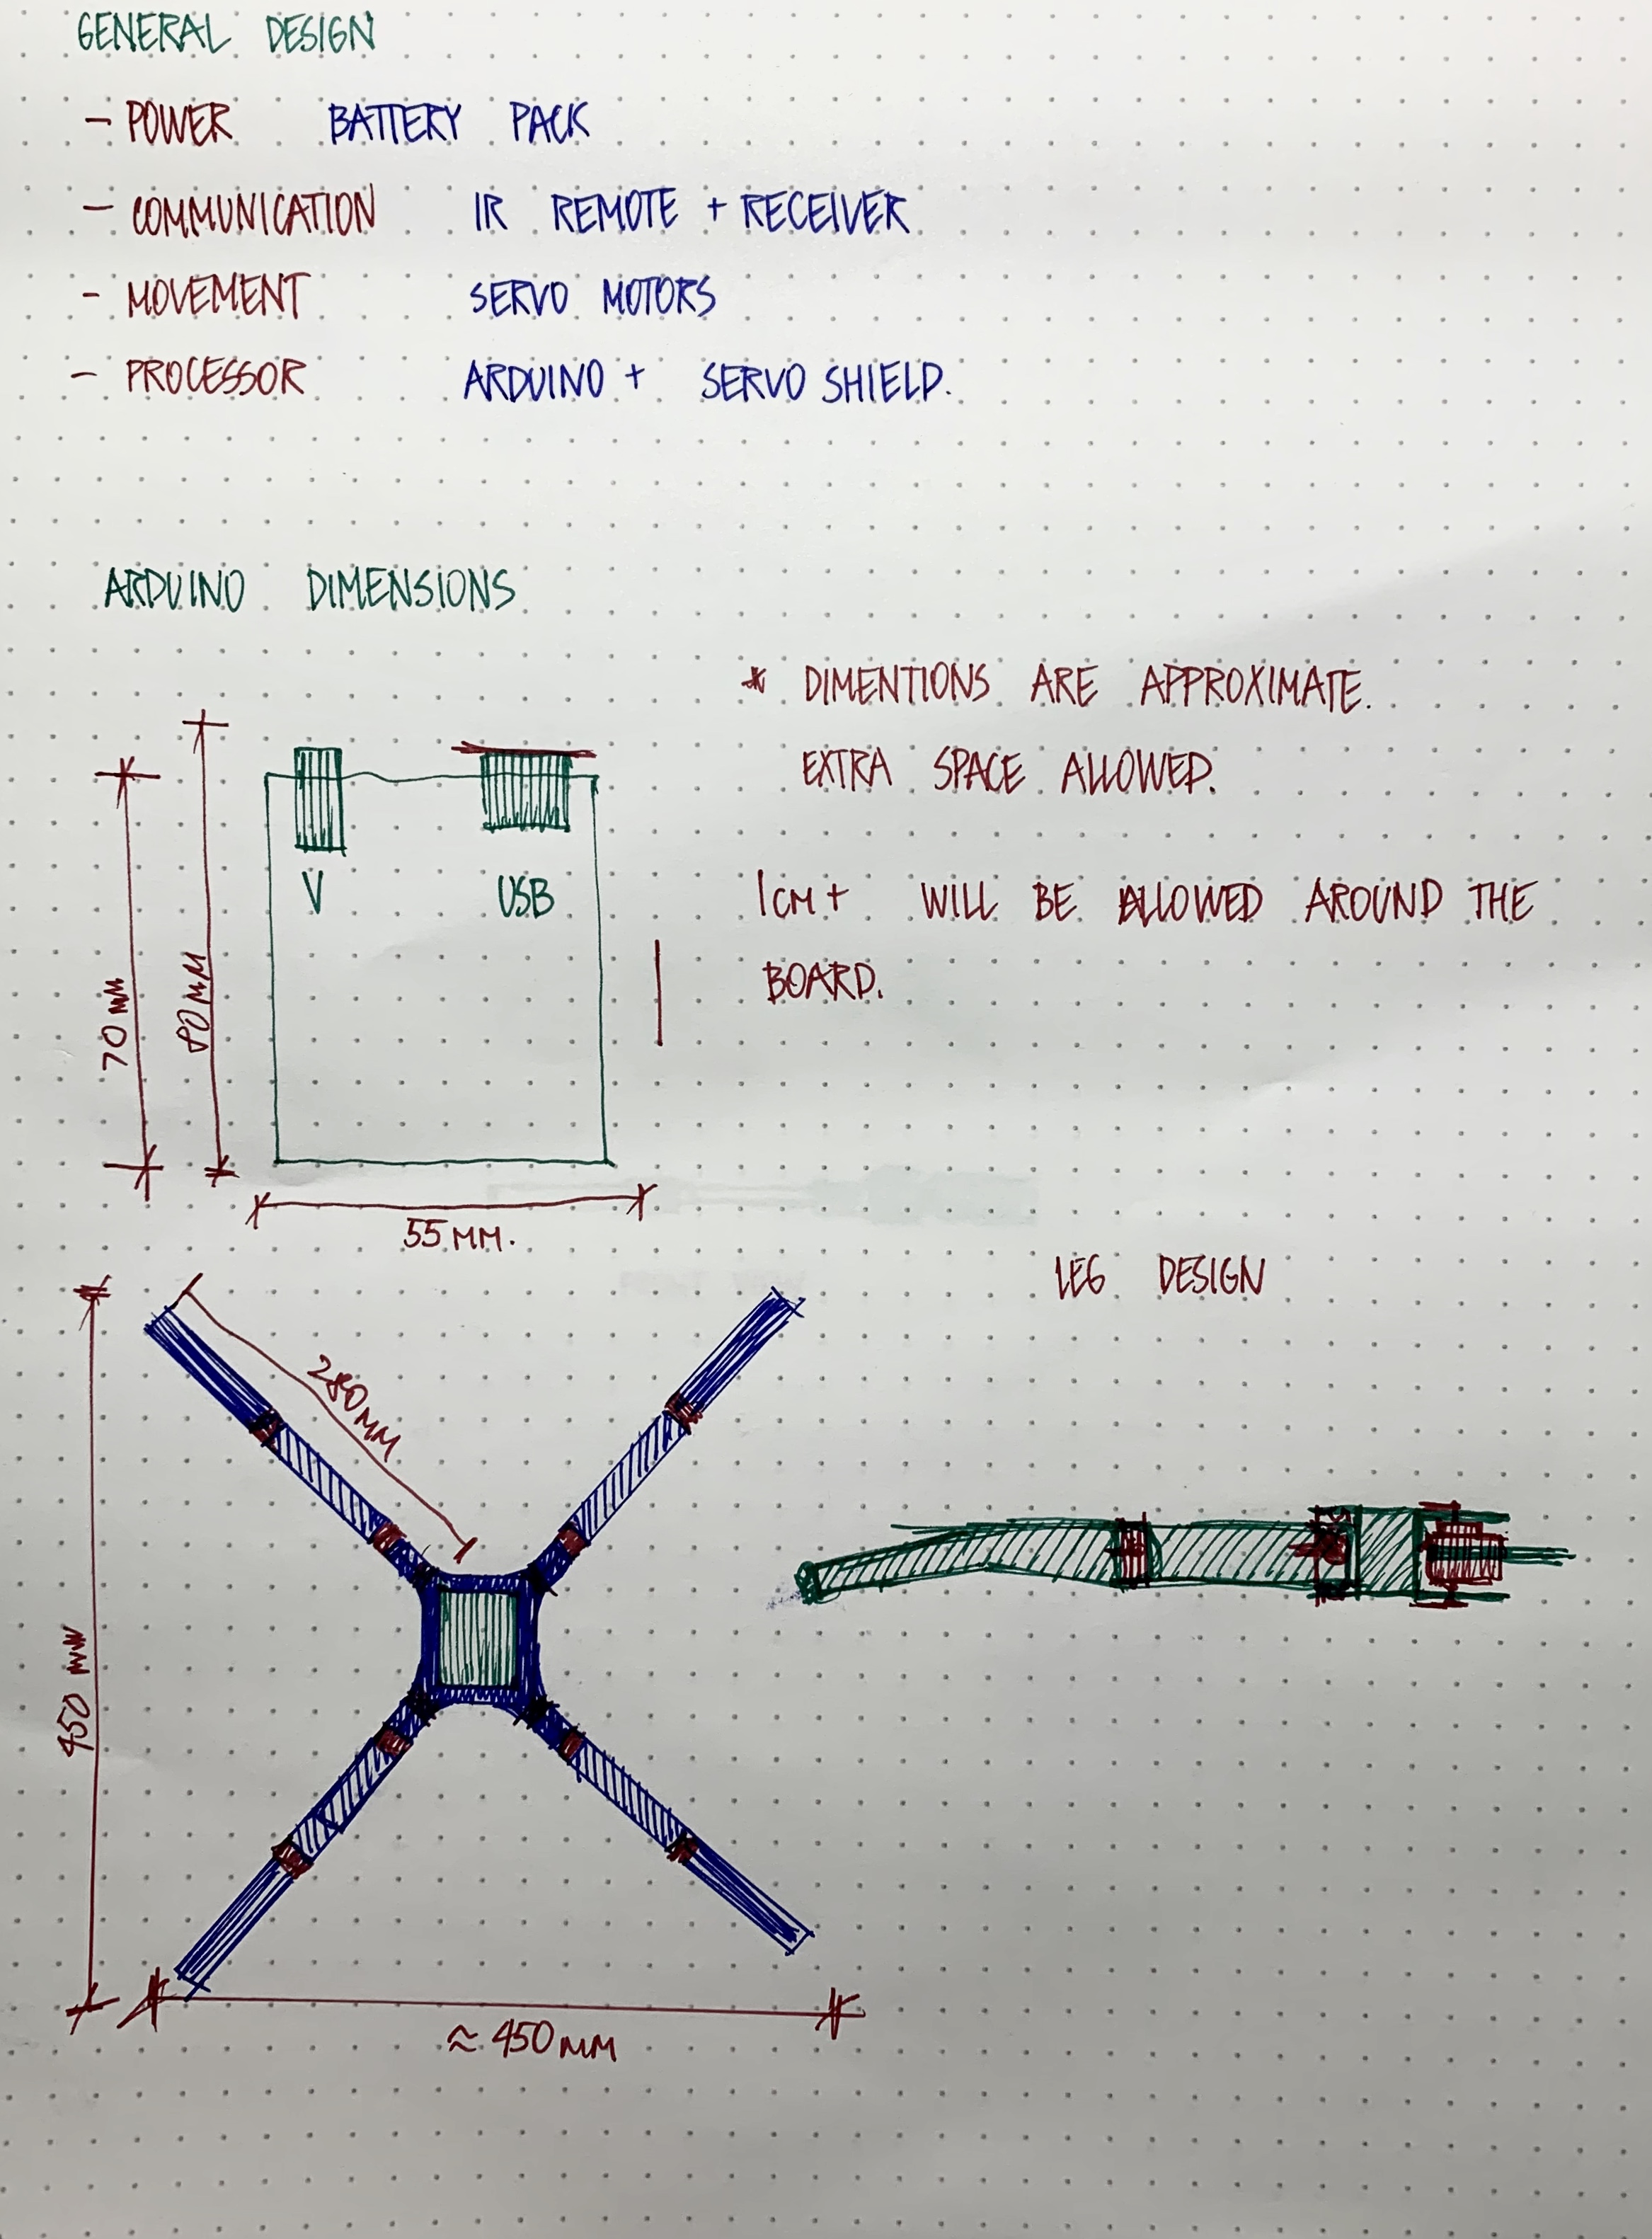 GENERAL DESIGN
- POWER BATTERY PACK
- COMMUNICATION IR REMOTE + RECEIVER
- MOVEMENT SERVO MOTORS
- PROCESSOR ARDUINO + SERVO SHIELD.
ARDUINO DIMENSIONS
* DIMENTIONS ARE APPROXIMATE.
EXTRA SPACE ALLOWED.
V USB
1CM+ WILL BE ALLOWED AROUND THE
BOARD.
70 MM
80 MM
55 MM.
LEG DESIGN
280 MM
450 MM
≈ 450 MM